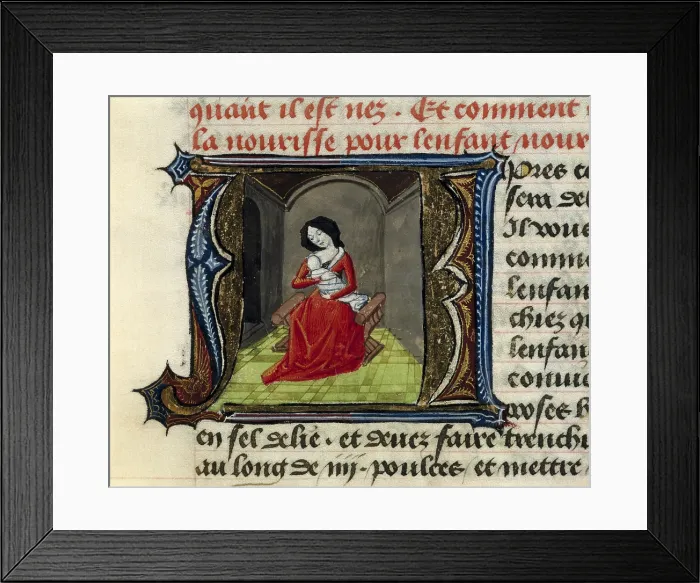 quant il est nez . Et comment
la nourisse pour lenfant nour
Apres ce
sera de
Il vous
comme
lenfan
chiez q
lenfan
poses
en sel delie . et deuez faire trenchi
au long de iiij . poulces et mettre